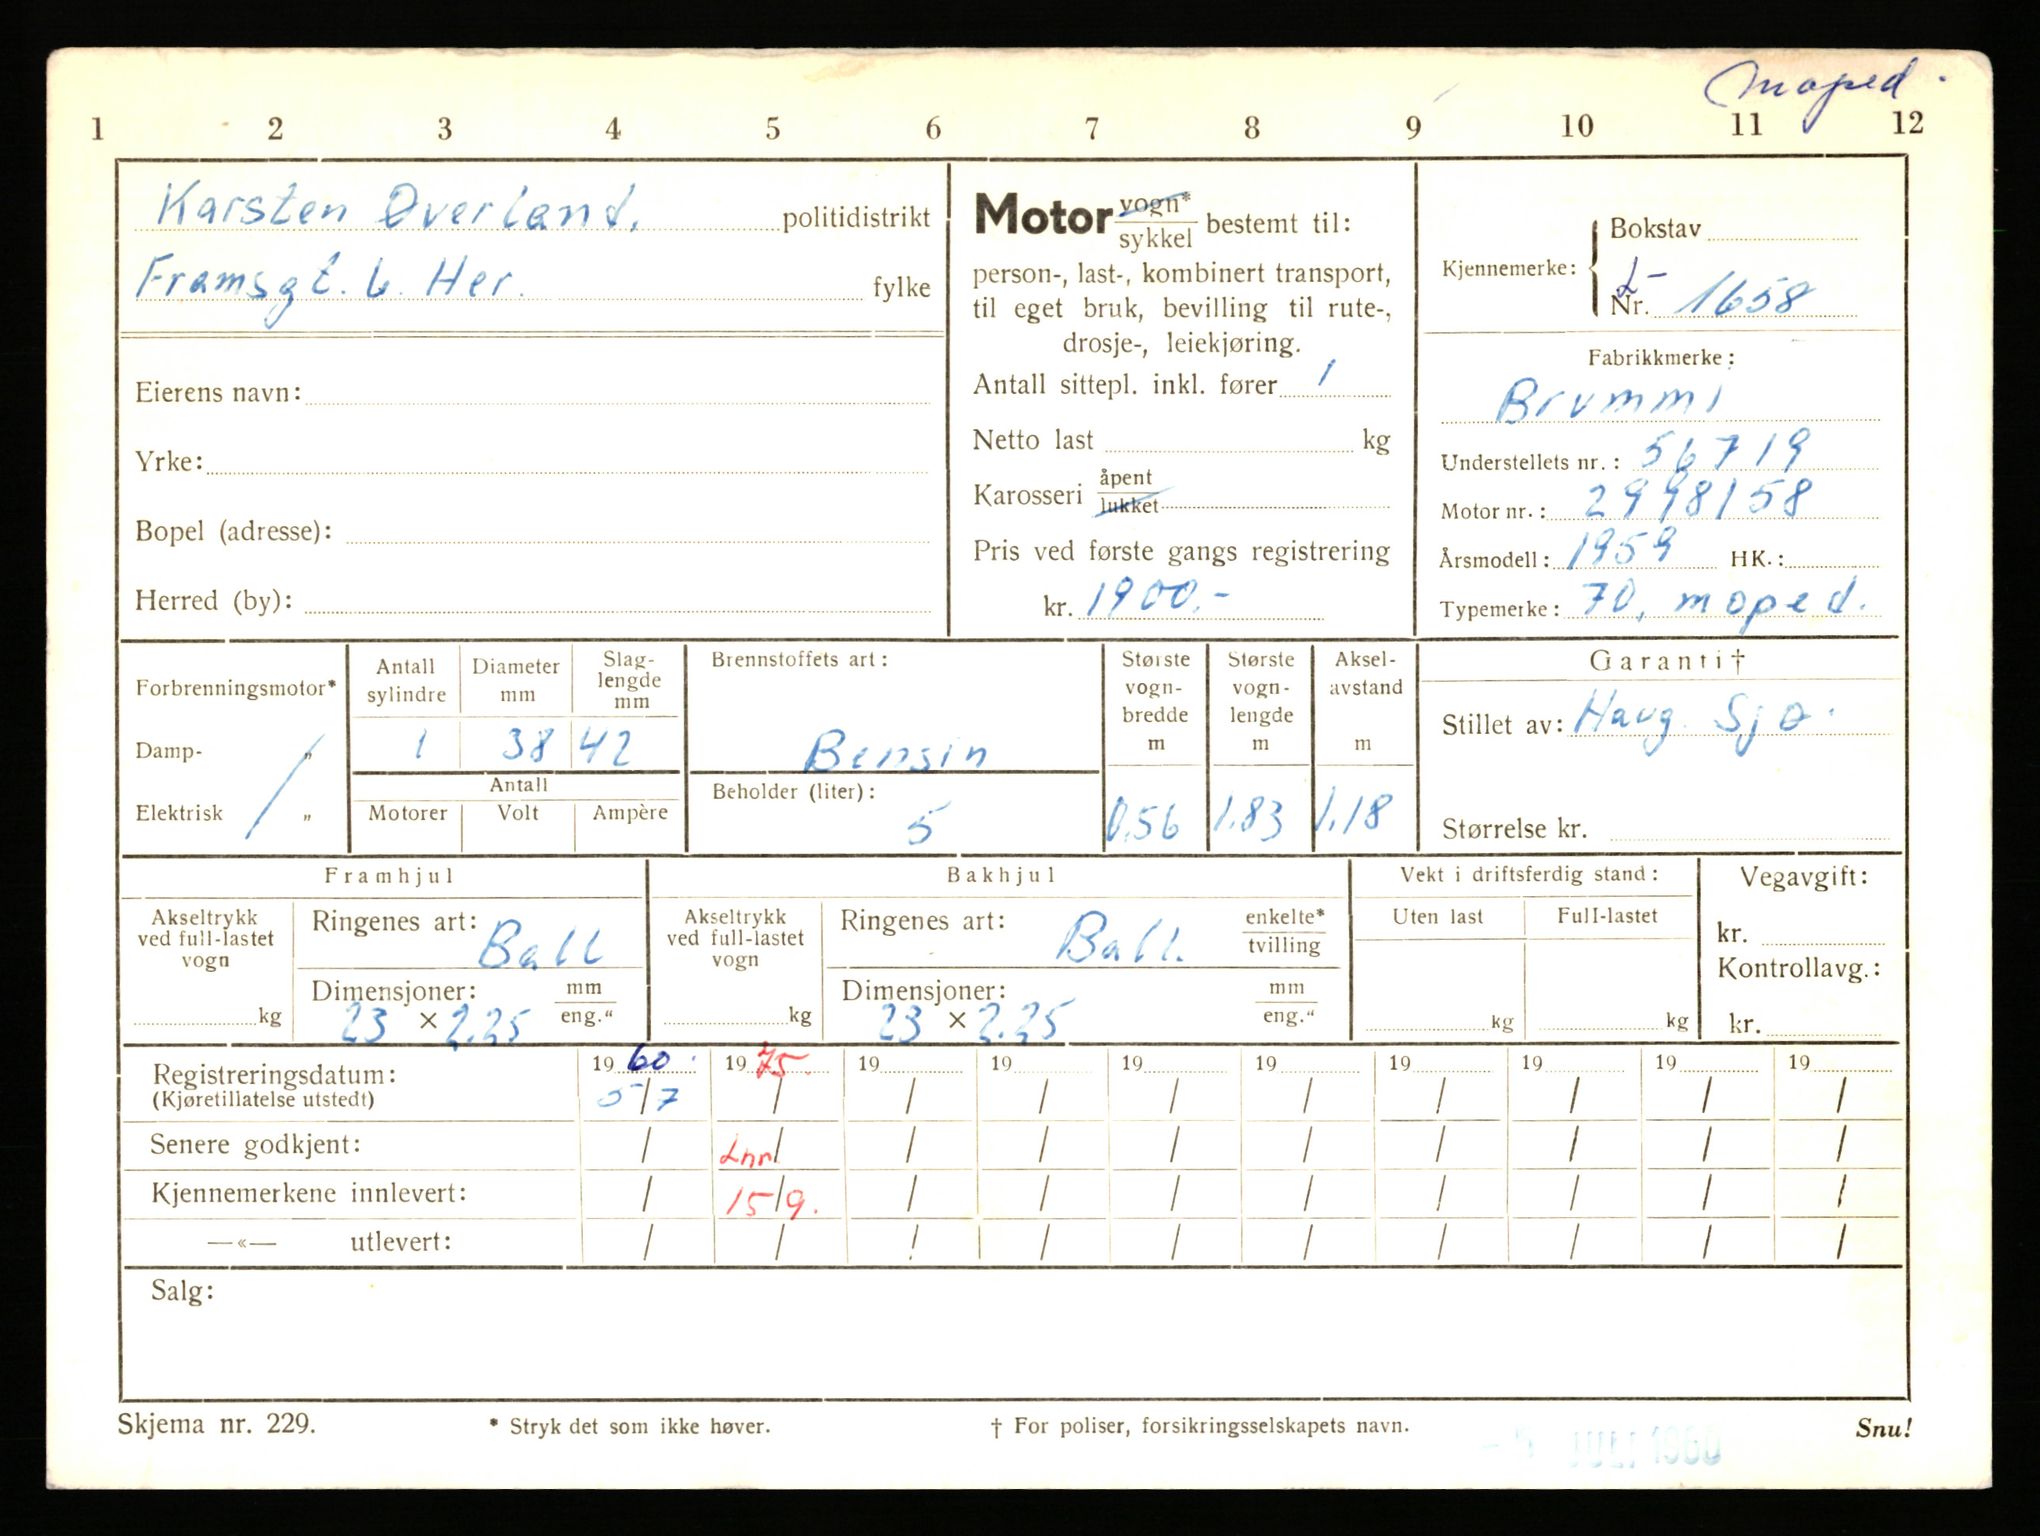 moped.
1 2 3 4 5 6 7 8 9 10 11 12
Karsten Øverland, politidistrikt
Framsgt. 6. Her. fylke
Eierens navn:
Yrke:
Bopel (adresse):
Herred (by):
Motor vogn* / sykkel bestemt til:
person-, last-, kombinert transport,
til eget bruk, bevilling til rute-,
drosje-, leiekjøring.
Antall sittepl. inkl. fører 1
Netto last kg
Karosseri åpent / lukket
Pris ved første gangs registrering
kr. 1900.-
Kjennemerke: Bokstav
L-
Nr. 1658
Fabrikkmerke:
Brummi
Understellets nr.: 56719
Motor nr.: 2998158
Årsmodell: 1959 HK.:
Typemerke: 70, moped.
Forbrenningsmotor*
Damp- „
Elektrisk „
Antall sylindre
1
Diameter mm
38
Slag-lengde mm
42
Antall
Motorer Volt Ampère
Brennstoffets art:
Bensin
Beholder (liter):
5
Største vogn-bredde m
0,56
Største vogn-lengde m
1.83
Aksel-avstand m
1.18
Garanti†
Stillet av: Haug. Sjø.
Størrelse kr.
Framhjul
Akseltrykk ved full-lastet vogn
kg
Ringenes art: Ball
Dimensjoner: mm / eng."
23 × 2.25
Bakhjul
Akseltrykk ved full-lastet vogn
kg
Ringenes art: Ball. enkelte* / tvilling
Dimensjoner: mm / eng."
23 × 2.25
Vekt i driftsferdig stand:
Uten last Full-lastet
kg kg
Vegavgift:
kr.
Kontrollavg.:
kr.
19 60. 19 75. 19 19 19 19 19 19 19 19
Registreringsdatum:
(Kjøretillatelse utstedt) 5/7 / / / / / / / / /
Senere godkjent: / Lnr/ / / / / / / / /
Kjennemerkene innlevert: / 15/9. / / / / / / / /
—«— utlevert: / / / / / / / / / /
Salg:
Skjema nr. 229. * Stryk det som ikke høver. † For poliser, forsikringsselskapets navn. Snu!
JULI 1960